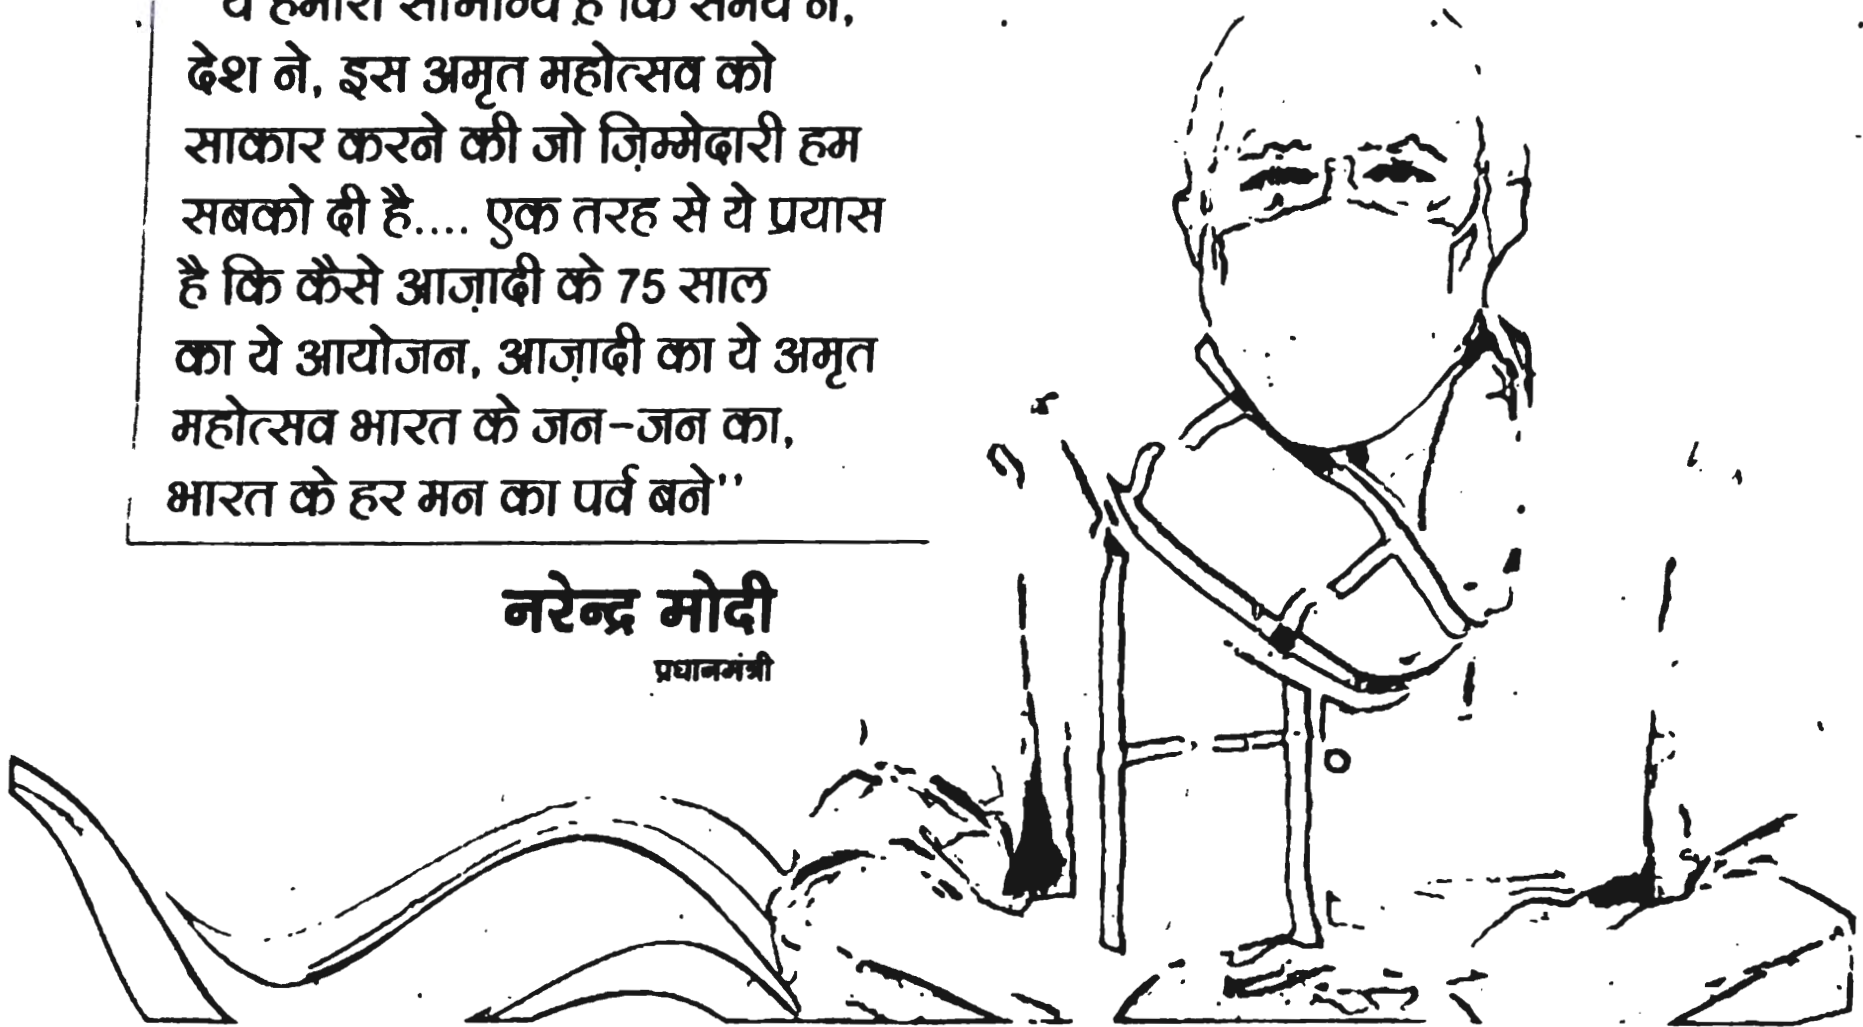 ये हमारा सौभाग्य है कि समय ने,
देश ने, इस अमृत महोत्सव को
साकार करने की जो ज़िम्मेदारी हम
सबको दी है.... एक तरह से ये प्रयास
है कि कैसे आज़ादी के 75 साल
का ये आयोजन, आज़ादी का ये अमृत
महोत्सव भारत के जन-जन का,
भारत के हर मन का पर्व बने”
नरेन्द्र मोदी
प्रधानमंत्री